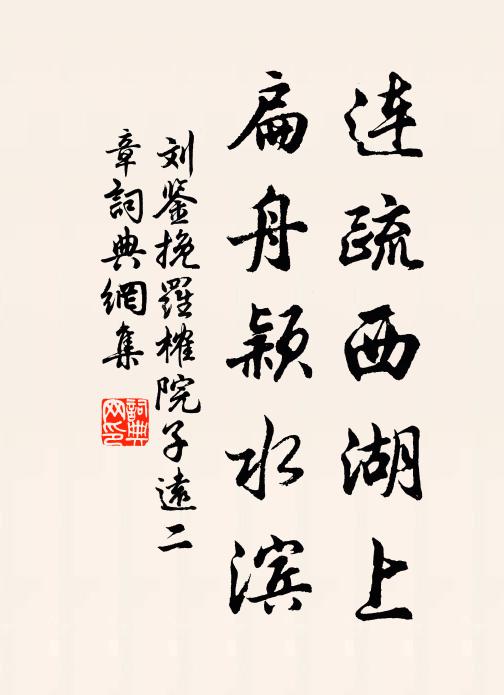 连疏西湖上
扁舟颍水滨
刘鉴挽羅榷院子遠二
章詞典網集
詞典网印